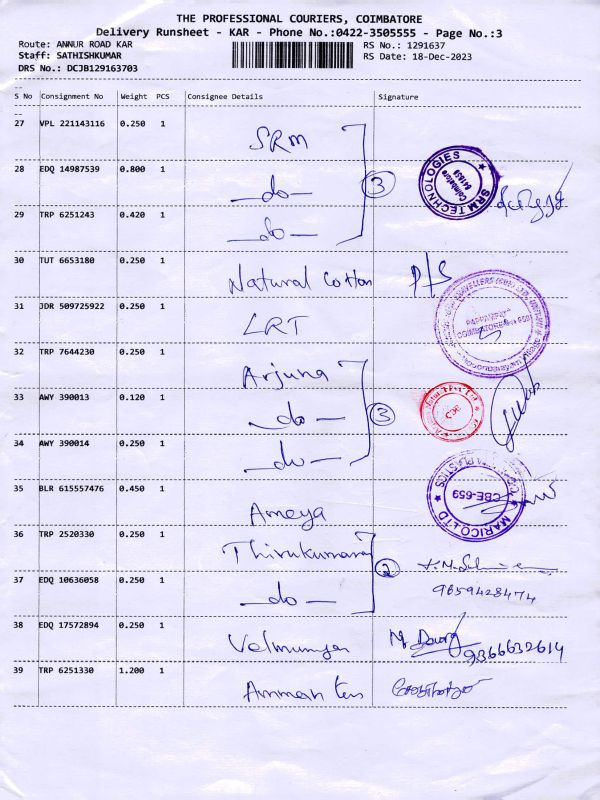 THE PROFESSIONAL COURIERS, COIMBATORE
Delivery Runsheet - KAR - Phone No.:0422-3505555 - Page No.:3
Route: ANNUR ROAD KAR RS No.: 1291637
Staff: SATHISHKUMAR RS Date: 18-Dec-2023
DRS No.: DCJB129163703
S No Consignment No Weight PCS Consignee Details Signature
27 VPL 221143116 0.250 1 SRM
28 EDQ 14987539 0.800 1 —do— 3 SRM TECHNOLOGIES Coimbatore 641659
29 TRP 6251243 0.420 1 —do—
30 TUT 6653180 0.250 1 Natural Cotton
31 JDR 509725922 0.250 1 LRT
32 TRP 7644230 0.250 1 Arjuna
33 AWY 390013 0.120 1 —do— 3
34 AWY 390014 0.250 1 —do—
35 BLR 615557476 0.450 1 Ameya MARICO LTD CBE-659
36 TRP 2520330 0.250 1 Thirukumaran 2
37 EDQ 10636058 0.250 1 —do— 9659428474
38 EDQ 17572894 0.250 1 Velmurugan 9366632614
39 TRP 6251330 1.200 1 Amman Tex